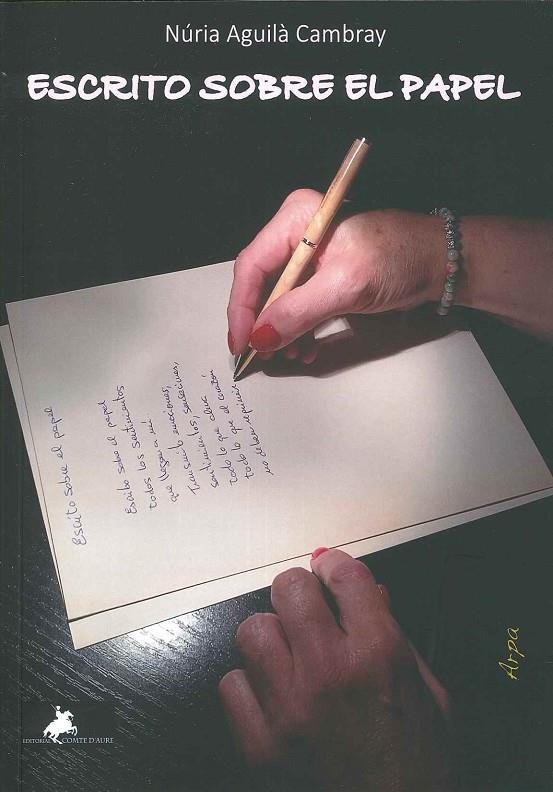 Núria Aguilà Cambray
ESCRITO SOBRE EL PAPEL
Escrito sobre el papel
Escribo sobre el papel
todos los sentimientos
que llegan a mí
Transmito emociones,
sensaciones,
sentimientos,
todo lo que el corazón
no debe reprimir
Arpa
EDITORIAL COMTE D'AURE